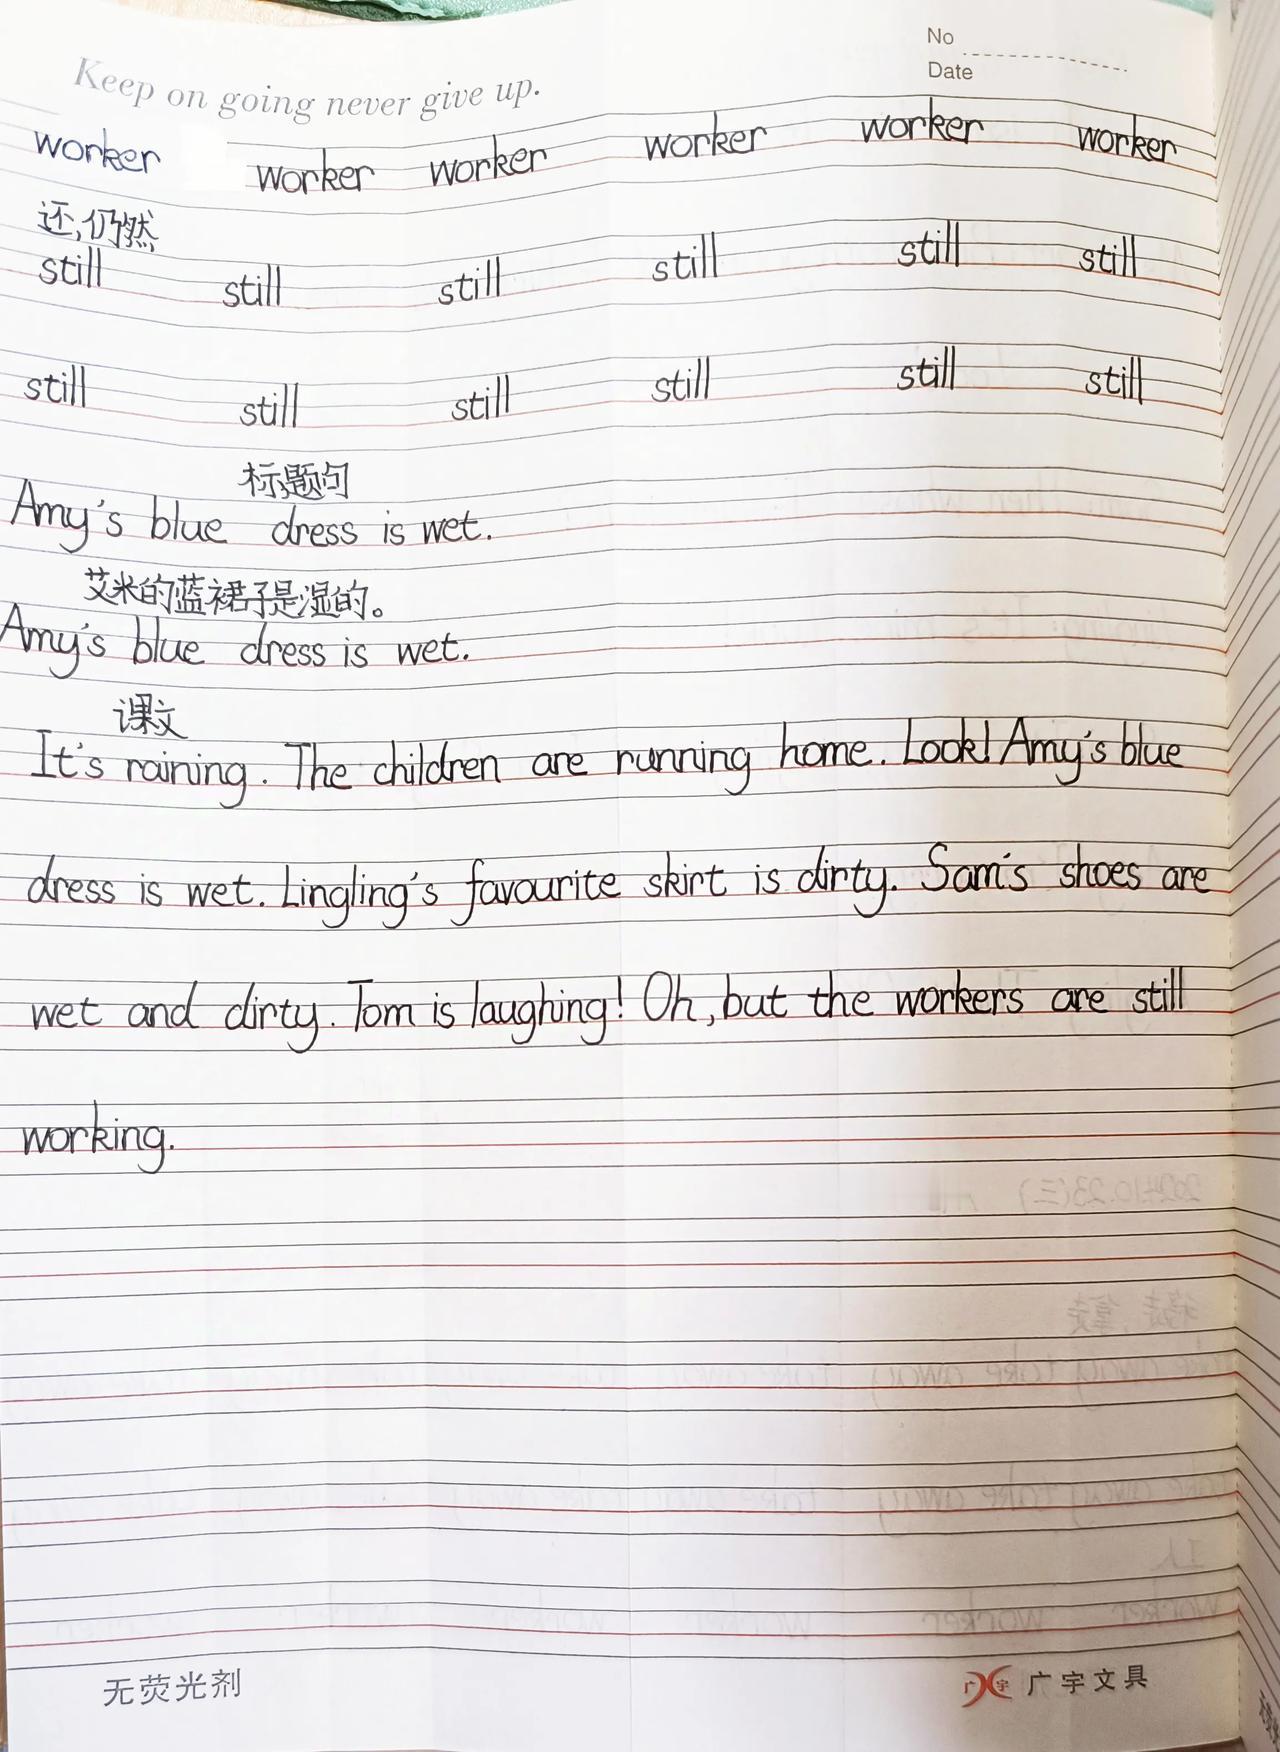 No
Date
Keep on going never give up.
worker worker worker worker worker worker
还,仍然
still still still still still still
still still still still still still
标题句
Amy's blue dress is wet.
艾米的蓝裙子是湿的。
Amy's blue dress is wet.
课文
It's raining. The children are running home. Look! Amy's blue
dress is wet. Lingling's favourite skirt is dirty. Sam's shoes are
wet and dirty. Tom is laughing! Oh, but the workers are still
working.
无荧光剂
广宇 广宇文具